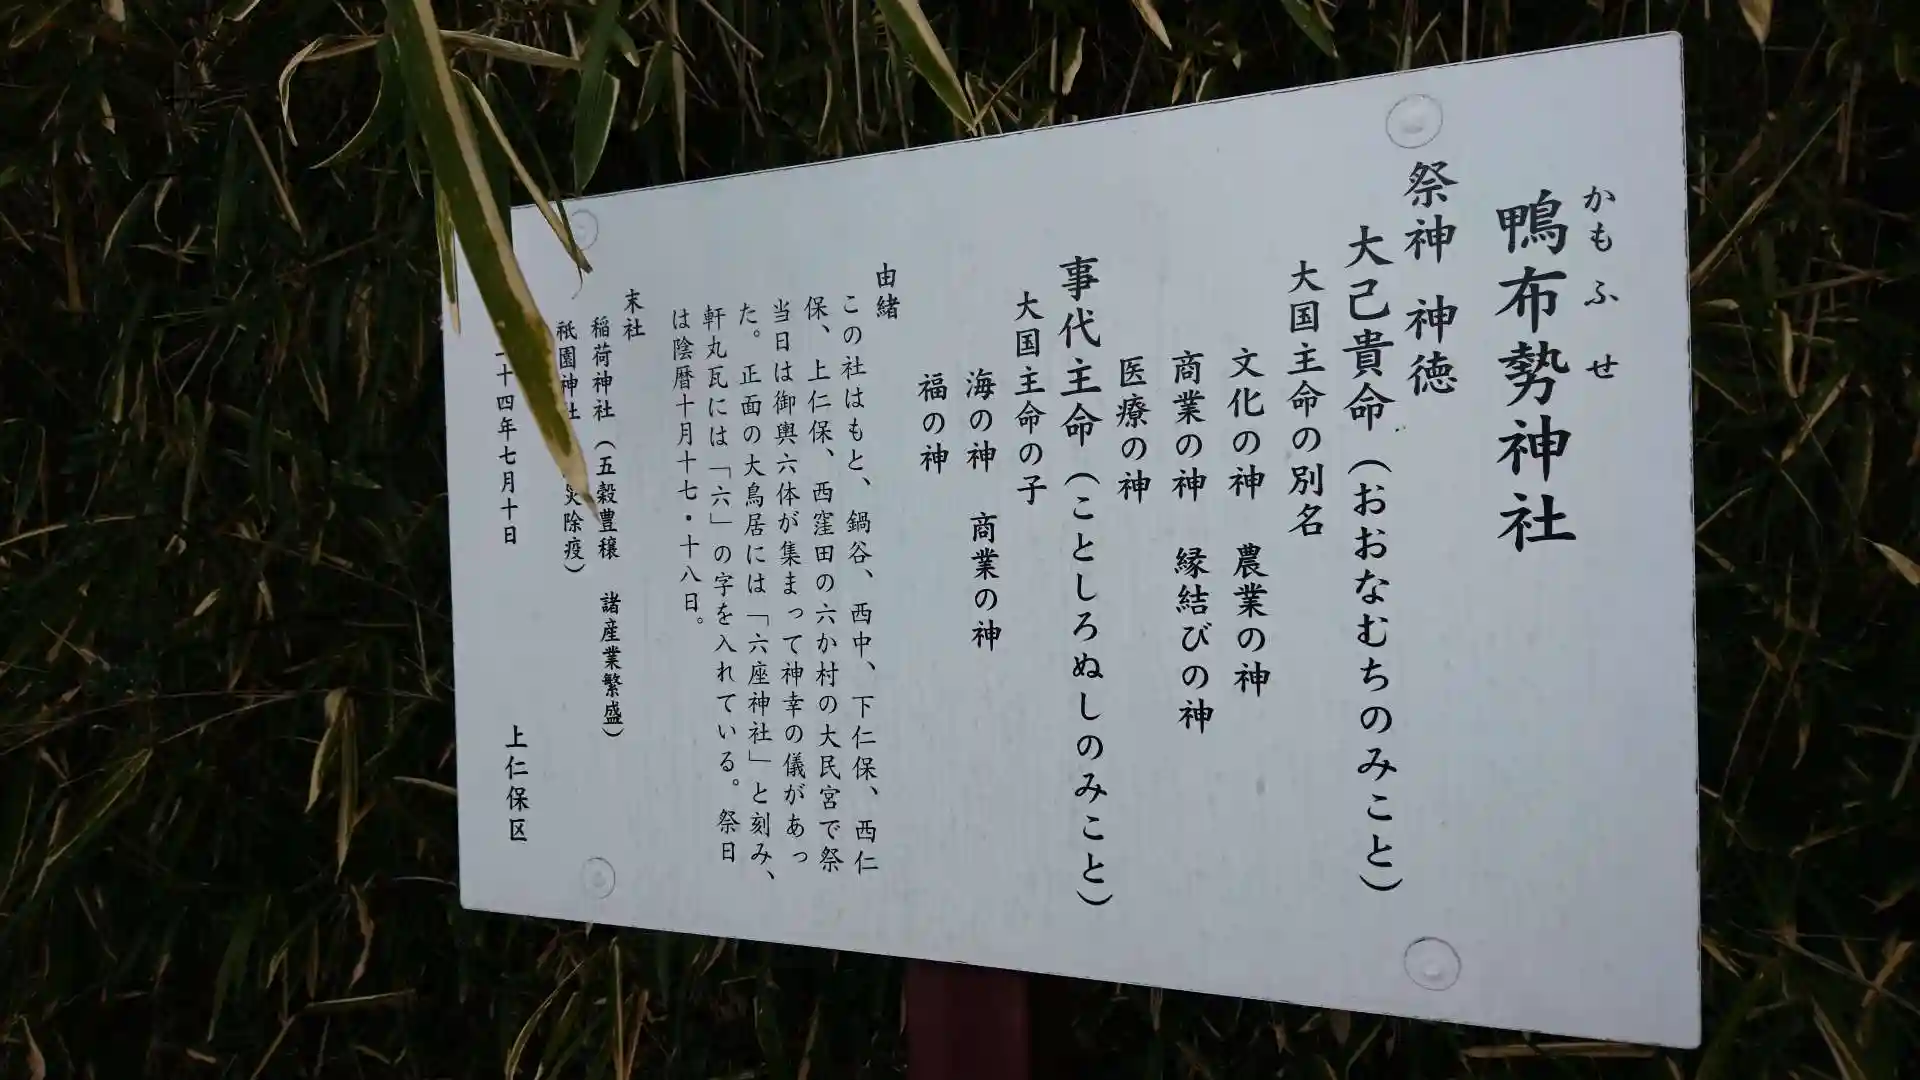 かもふせ
鴨布勢神社
祭神 神徳
大己貴命（おおなむちのみこと）
大国主命の別名
文化の神 農業の神
商業の神 縁結びの神
医療の神
事代主命（ことしろぬしのみこと）
大国主命の子
海の神 商業の神
福の神
由緒
この社はもと、鍋谷、西中、下仁保、西仁
保、上仁保、西窪田の六か村の大民宮で祭
当日は御輿六体が集まって神幸の儀があっ
た。正面の大鳥居には「六座神社」と刻み、
軒丸瓦には「六」の字を入れている。祭日
は陰暦十月十七・十八日。
末社
稲荷神社（五穀豊穣 諸産業繁盛）
祇園神社 災除疫）
十四年七月十日
上仁保区